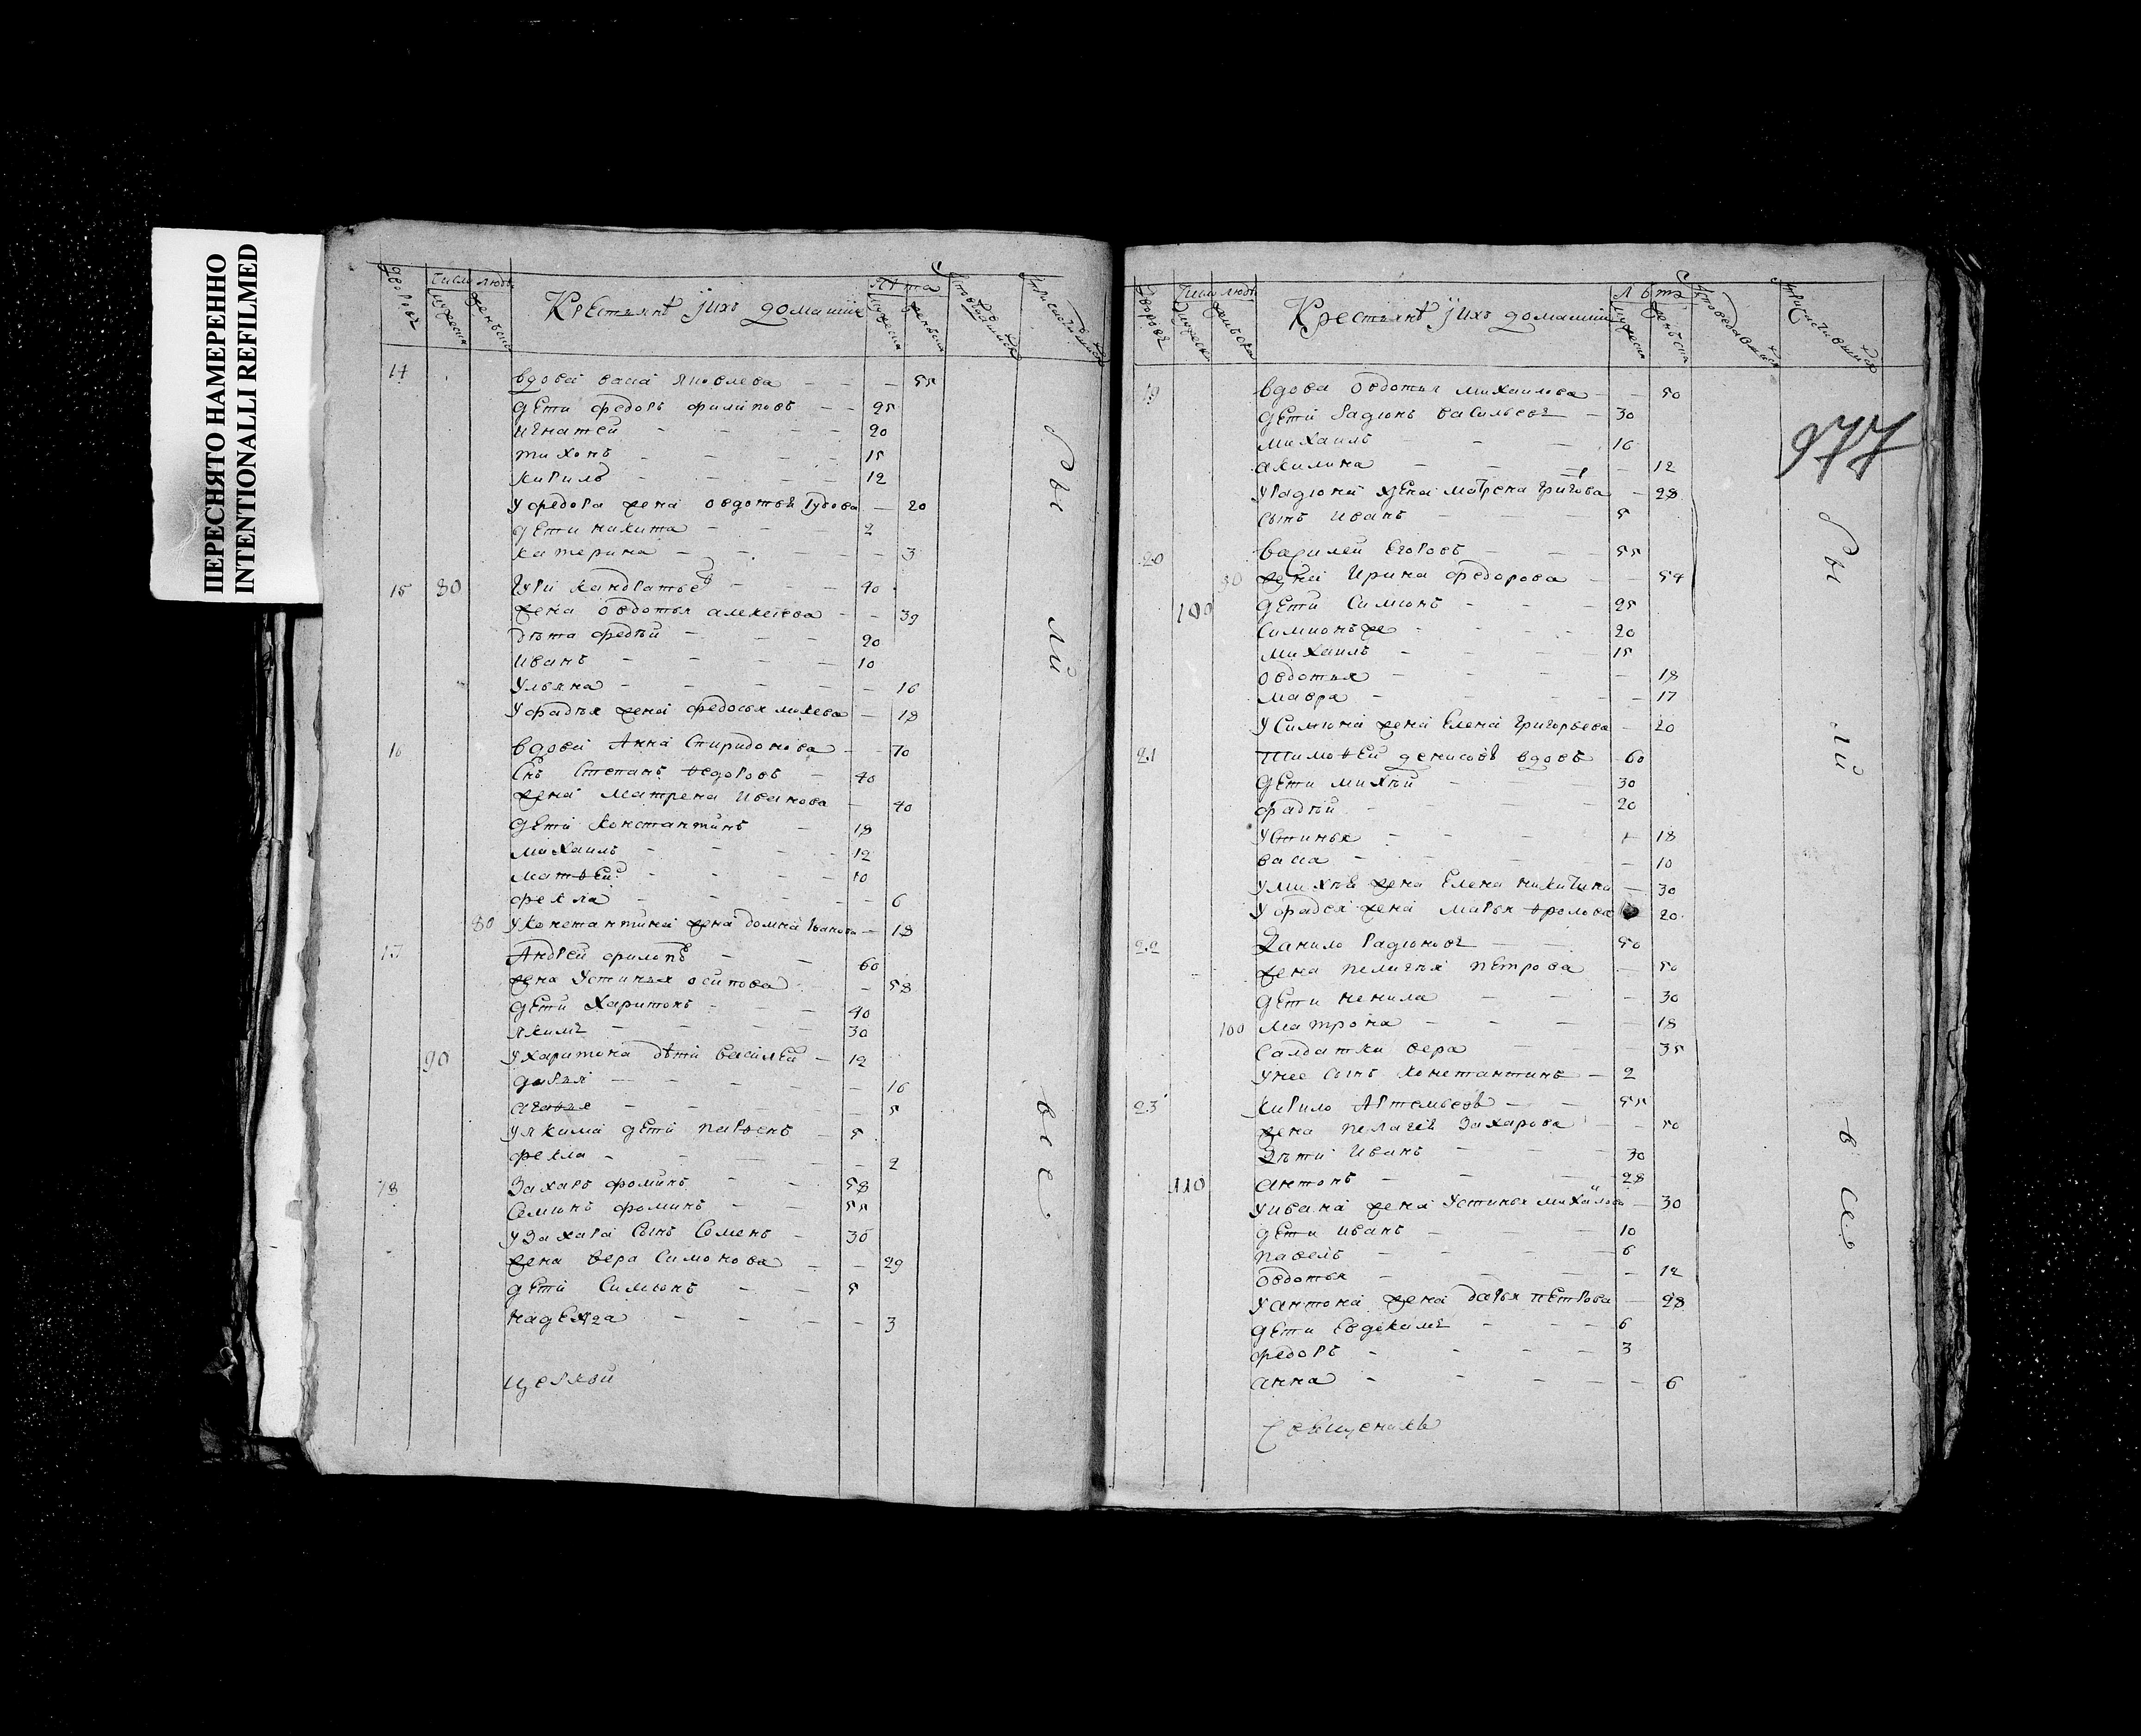 ПЕРЕСНЯТО НАМЕРЕННО
INTENTIONALLI REFILMED
дворовъ
число людъ
мужеска
женъска
Крестьянъ ихъ домашнiе
лѣта
мужеска
женъска
14 вдова васа яковлева — — — 55
дети федоръ филиповъ — — 25
игнатей — — — — 20
тихонъ — — — — 15
кирилъ — — — — 12
у федора жена овдотья — 20
дети никита — — 2
катерина — — — — — 3
15 80 гурй кандратьевъ — — — 40
жена овдотья алексеева — — 39
дѣта фадѣй — — — 20
иванъ — — — — 10
ульяна — — — — — 16
у фадѣя жена федосья — 18
16 вдова Анна спиридонова — — 70
Снъ степанъ ѳедоровъ — 40
жена матрена иванова — 40
дети константинъ — 18
михаилъ — — — — 12
матѳей — — — — 10
фекла — — — — — 6
80 у константина жена домна иванова — 18
17 Андрей филипъ — — 60
жена устинья осипова — 58
дети харитонъ — — — 40
якимъ — — — — 30
90 у харитона дѣти василей — 12
дарья — — — — — 16
агаѳья — — — — 5
у якима дети парѳенъ — 5
фекла — — — — — 2
18 захаръ фоминъ — — 58
семионъ фоминъ — — 55
у захара сынъ семенъ — 30
жена вера симонова — — 29
дети симионъ — — 5
надежда — — — — — 3
церкви
бы
ли
все
дворовъ
число людъ
мужеск
женъска
Крестьянъ ихъ домашнiе
лѣта
мужеска
женъска
977
19 вдова овдотья михаилова — — 50
дети радионъ васильевъ — 30
михаилъ — — — 16
акилина — — — — 12
у радиона жена матрена — 28
сынъ иванъ — — — 5
20 василей егоровъ — — — 55
90 жена ирина федорова — — 54
100 дети симионъ — — — 25
симионъ же — — — 20
михаилъ — — — — 15
овдотья — — — — — 18
мавра — — — — — 17
у симиона жена елена григорьева — 20
21 тимоѳей денисовъ вдовъ 60
дети михѣй — — 30
фадѣй — — — 20
устинья — — — — — 18
васа — — — — — 10
у михѣя жена елена никитина — 30
у фадея жена марья ѳролова 20
22 данило радионовъ — — 50
жена пелагия петрова — 50
дети ненила — — — 30
100 матрона — — — — 18
салдатка вера — — — 35
у нее сынъ константинъ — 2
23 кирило артемьевъ — — 55
жена пелагея захарова — — 50
дѣти иванъ — — — 30
110 антонъ — — — 28
у ивана жена устинья михаилова — 30
дети иванъ — — — 10
павелъ — — — — 6
овдотья — — — — — 12
у антона жена дарья петрова — 28
дети евдокимъ — — — 6
федоръ — — — — 3
анна — — — — — 6
бы
ли
все